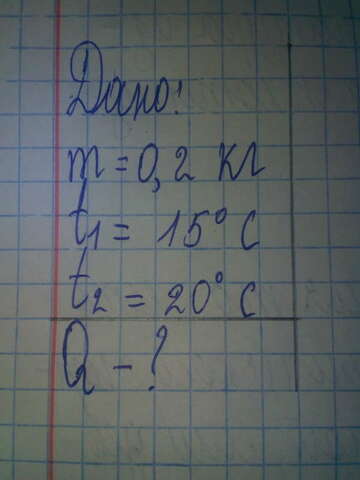 Дано:
m = 0,2 кг
t1 = 15° C
t2 = 20° C
Q - ?